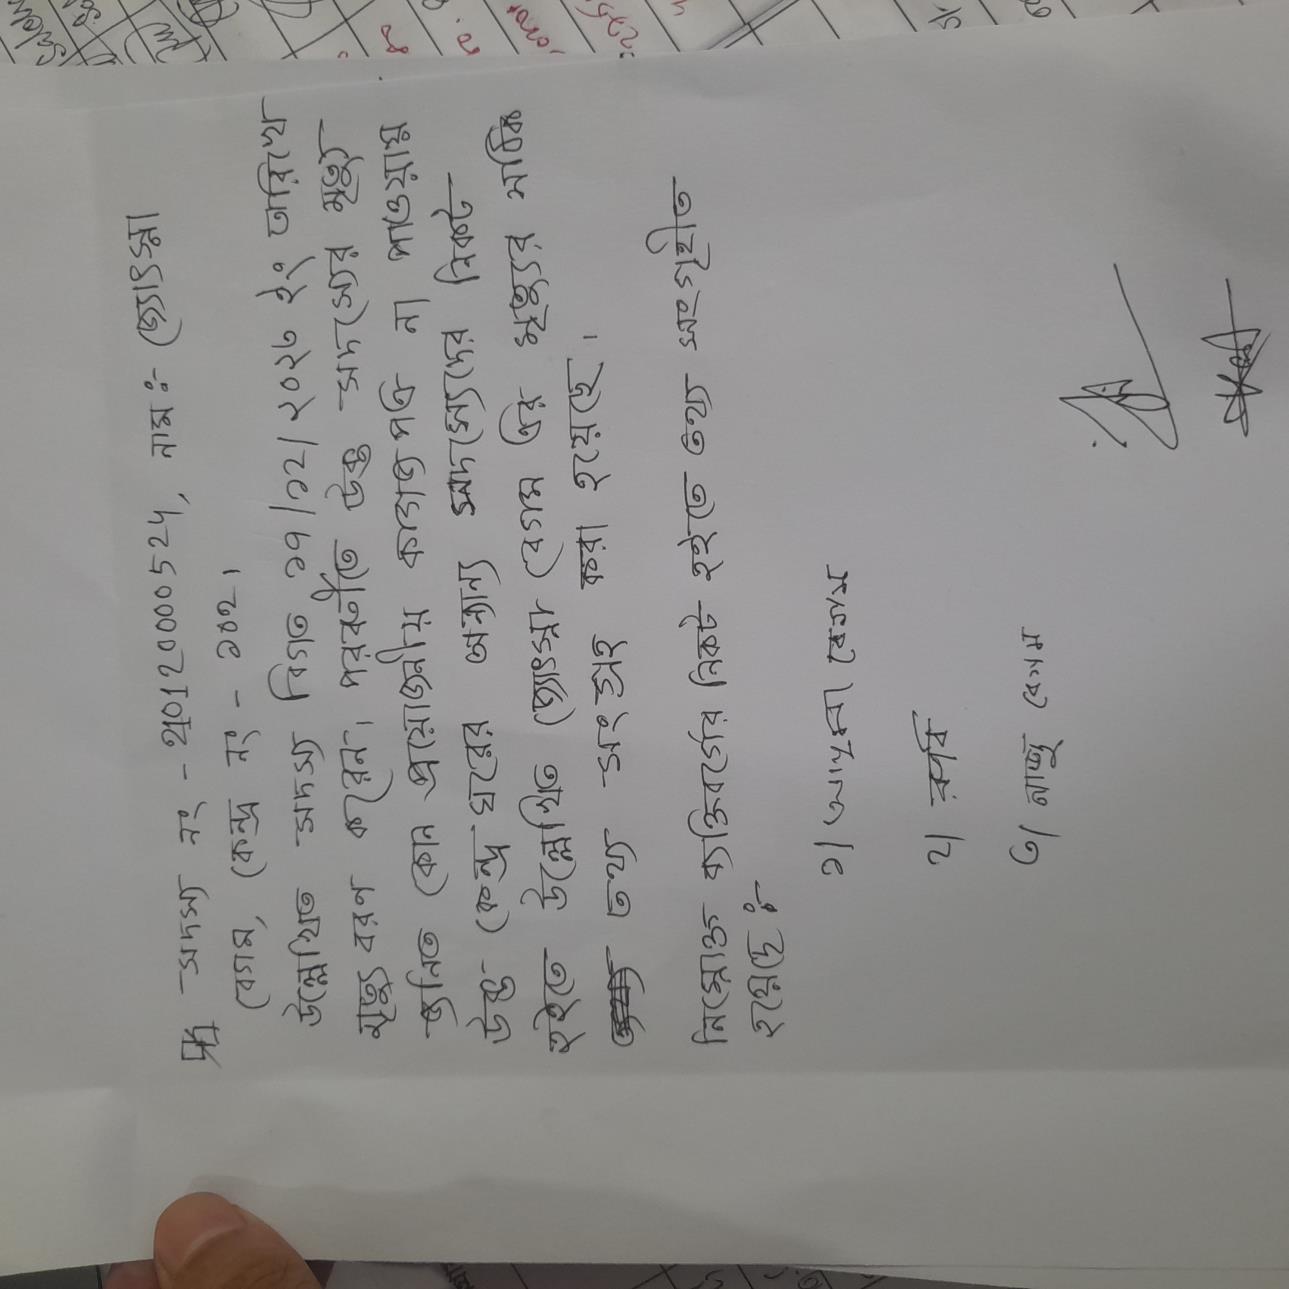 সদস্য নং - 20120000524, নামঃ- জ্যোৎস্না
বেগম, কেন্দ্র নং - ১০২।
উল্লেখিত সদস্য বিগত ১৭/১২/২০২৩ ইং তারিখে
মৃত্যু বরণ করেন। পরবর্তীতে উক্ত সদস্যের মৃত্যু
জনিত কোন প্রয়োজনীয় কাগজপত্র না পাওয়ায়
উক্ত কেন্দ্র ঘরের অন্যান্য সদস্যদের নিকট
হইতে উল্লেখিত জ্যোৎস্না বেগম এর মৃত্যুর সঠিক
তথ্য সংগ্রহ করা হয়েছে।
নিম্নোক্ত ব্যক্তিবর্গের নিকট হইতে তথ্য সংগৃহীত
হয়েছে ঃ-
১। আমেনা বেগম
২। রুপবি
৩। লাজু বেগম